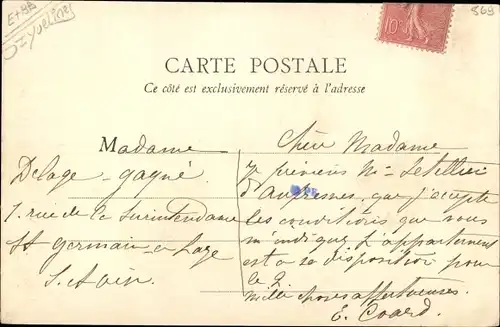 E+BB
Yvelines
569
10c
CARTE POSTALE
Ce côté est exclusivement réservé à l'adresse
Madame
Delage-gagné
7 rue de la Surintendance
St germain en Laye
S. et Oise
Chère Madame
Je préviens Mr Letellier
d'Angesnes, que j'accepte
les conditions que vous
m'indiquez. L'appartement
est à sa disposition pour
le 2
mille choses affectueuses.
E. Coard.